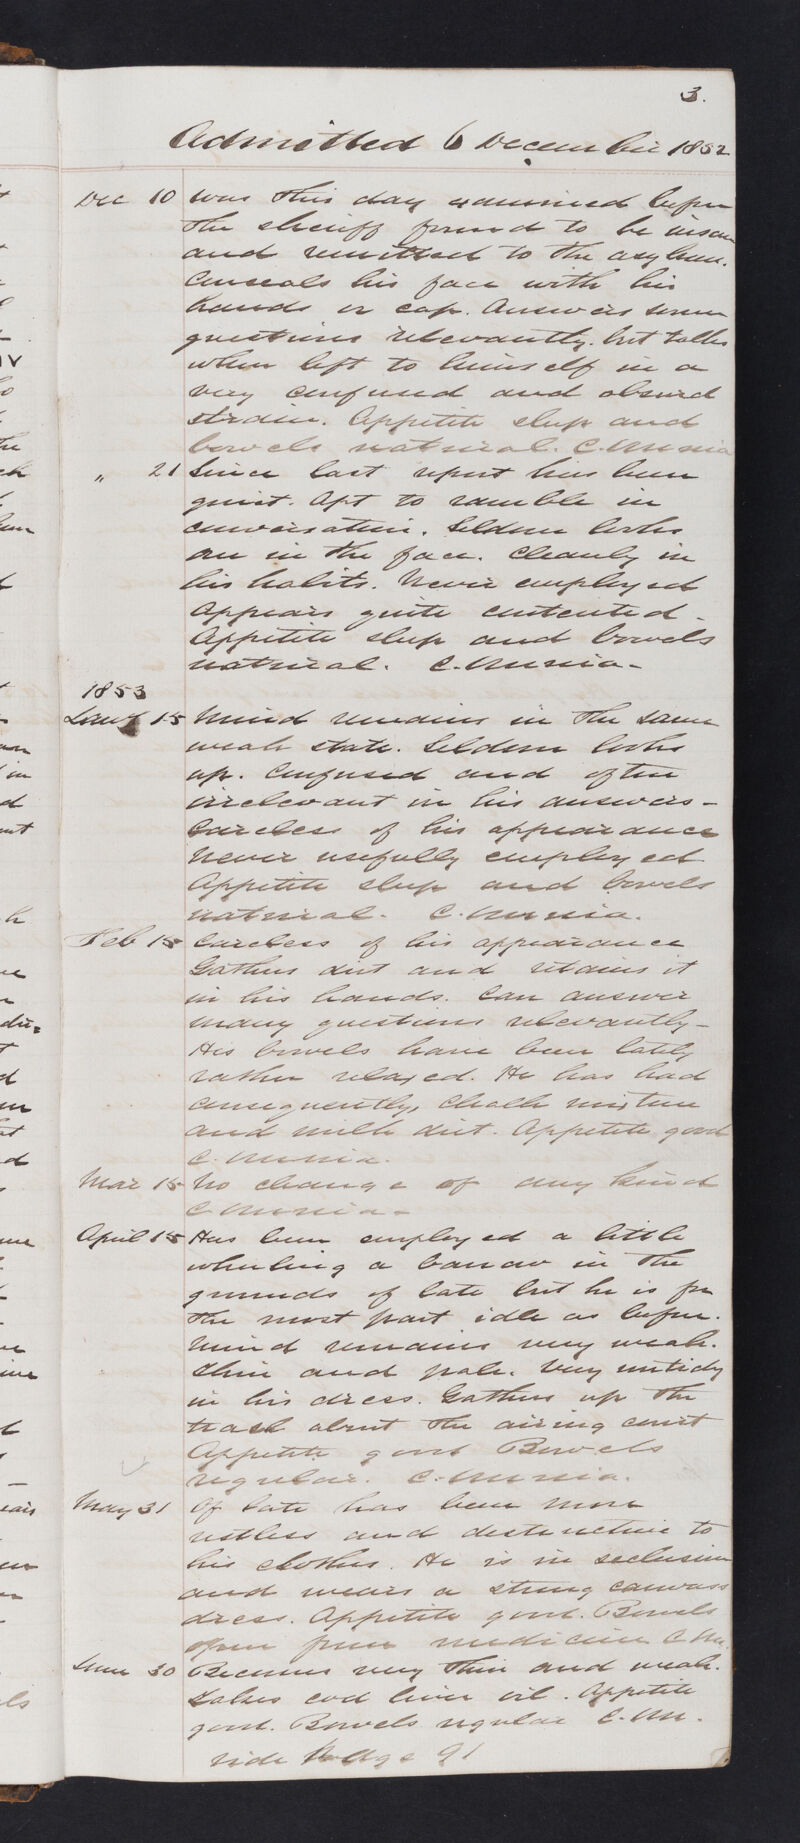 3.
Admitted 6 December 1852
Dec 10 Was this day examined before
the sheriff found to be insane
and remitted to the asylum.
Conceals his face with his
hands or cap. Answers some
questions relevantly. but talks
when left to himself in a
very confused and absurd
strain. Appetite sleep and
bowels natural. C.
" 21 Since last report has been
quiet. Apt to ramble in
conversation. Seldom looks
one in the face. Cleanly in
his habits. Never employed
Appears quite contented.
Appetite sleep and bowels
natural. C.
1853
Jany 15 Mind remains in the same
weak state. Seldom looks
up. Confused and often
irrelevant in his answers -
Careless of his appearance
Never usefully employed
Appetite sleep and bowels
natural. C.
Feb 15 Careless of his appearance
Gathers dirt and retains it
in his hands. Can answer
many questions relevantly -
His bowels have been lately
rather relaxed. He has had
consequently, chalk mixture
and milk diet. Appetite good
C.
Mar 15 No change of any kind
C.
April 15 Has been employed a little
wheeling a barrow in the
grounds of late but he is for
the most part idle as before.
Mind remains very weak.
Thin and pale. Very untidy
in his dress. Gathers up the
trash about the airing court
Appetite good Bowels
regular. C.
May 31 Of late has been more
restless and destructive to
his clothes. He is in seclusion
and wears a strong canvass
dress. Appetite good. Bowels
open from medicine C. M.
June 30 Becomes very thin and weak.
Takes cod liver oil. Appetite
good. Bowels regular C. M.
vide Page 91